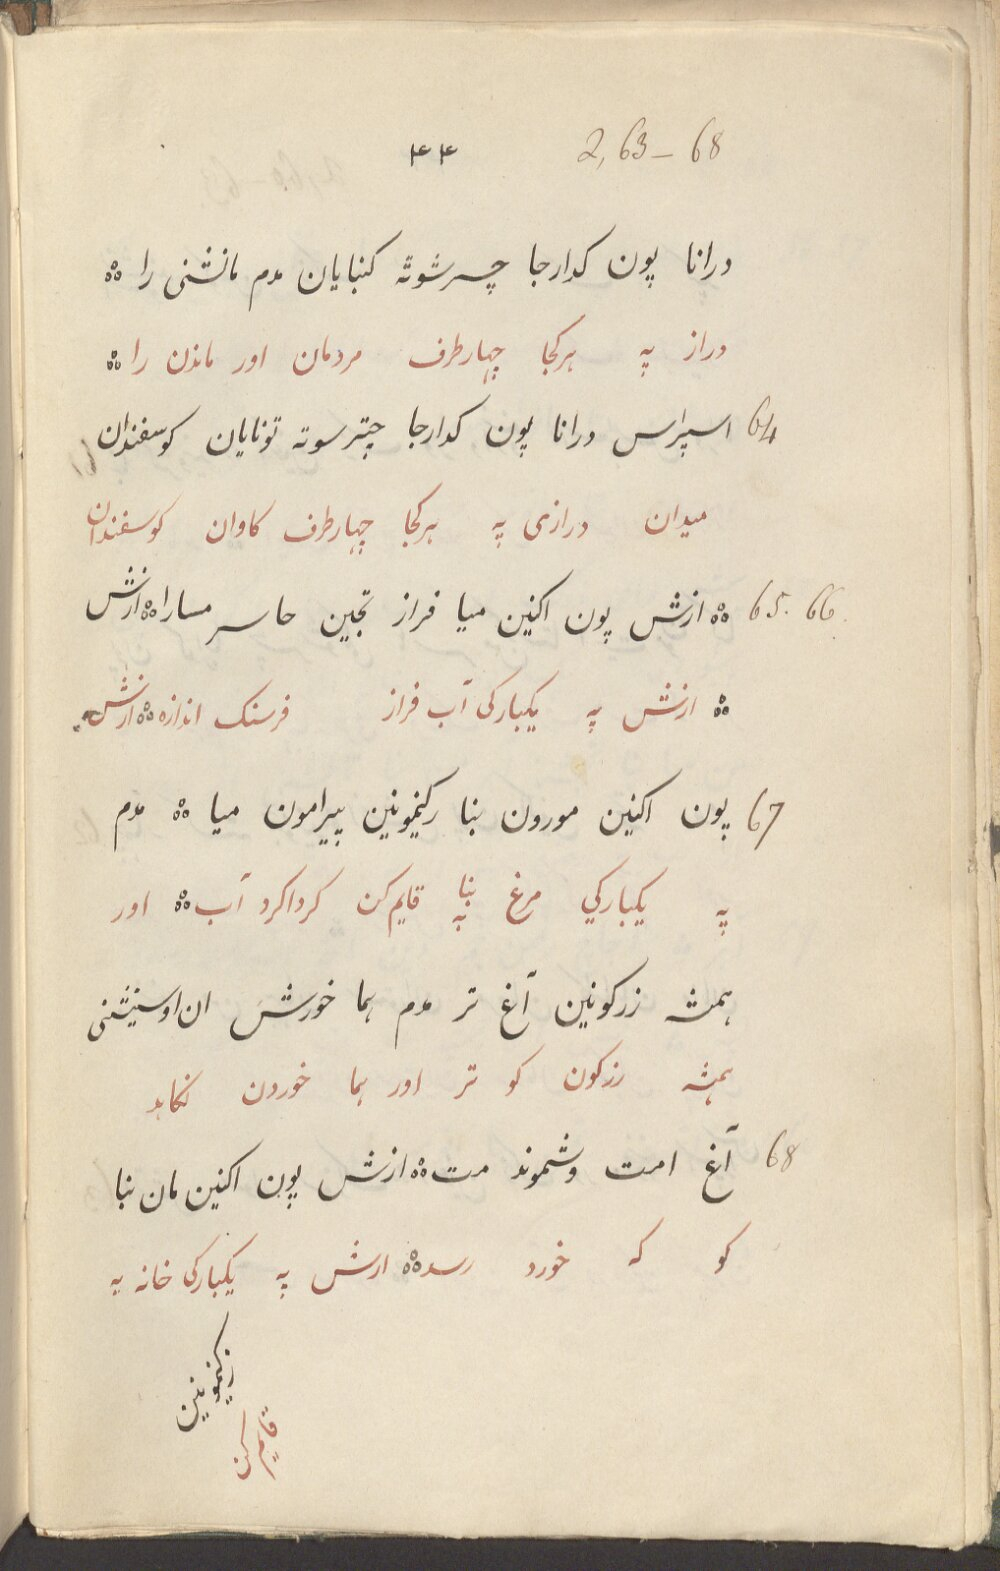 2, 63 – 68 ۴۴
درانا پون کدارجا چسرشوته کنبایان مدم مانشنی را ஃ
دراز په هرکجا چهارطرف مردمان اور ماندن را ஃ
64 اسپراس درانا پون کدارجا چترسوته تونایان کوسفندان
میدان درازی په هرکجا چهارطرف کاوان کوسفندان
65. 66 ஃ ازش پون اکنین میا فراز تجین حاسر مسارا ஃ ازش
ஃ ازش په یکبارکی آب فراز فرسنک اندازه ஃ ازش
67 پون اکنین مورون بنا رکنیمونین پیرامون میا ஃ مدم
په یکبارکي مرغ بنا به قایم کن کرداکرد آب ஃ اور
همشه زرکونین آغ تر مدم هما خورشن ان اوسنیشنی
همشه زرکون کو تر اور هما خوردن نکاهد
68 آغ امت وشموند مت ஃ ازش پون اکنین مان بنا
کو که خورد رسد ஃ ازش په یکبارکی خانه به
قایم کن